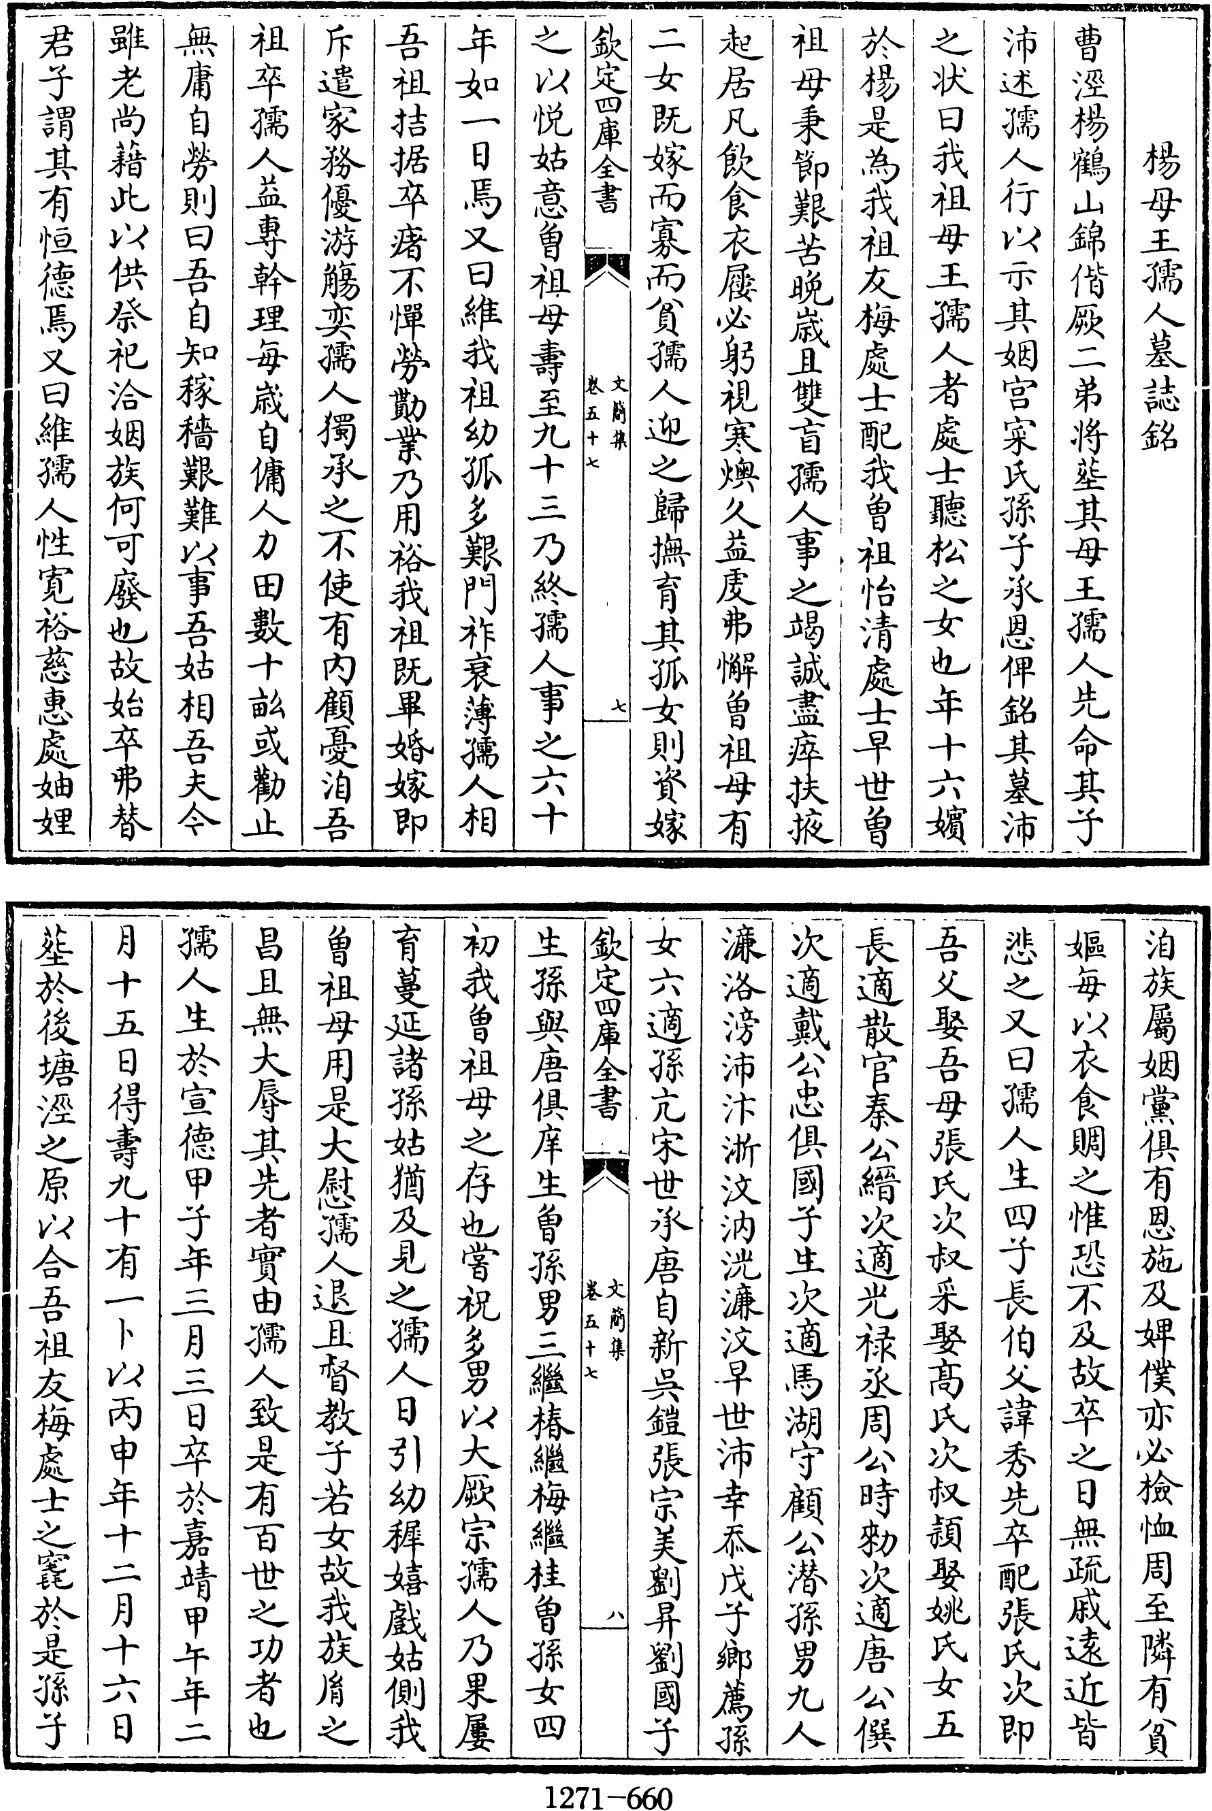 楊母王孺人墓誌銘
曹涇楊鶴山錦偕厥二弟將塟其母王孺人先命其子
沛述孺人行以示其姻宫寀氏孫子承恩俾銘其墓沛
之狀曰我祖母王孺人者處士聽松之女也年十六嬪
於楊是為我祖友梅處士配我曽祖怡清處士早世曽
祖母秉節艱苦晩嵗且雙盲孺人事之竭誠盡瘁扶掖
起居凡飲食衣屨必躬視寒燠久益䖍弗懈曽祖母有
二女既嫁而寡而貧孺人迎之歸撫育其孤女則資嫁
欽定四庫全書
文簡集
卷五十七
七
之以悦姑意曽祖母壽至九十三乃終孺人事之六十
年如一日焉又曰維我祖幼孤多艱門祚衰薄孺人相
吾祖拮据卒瘏不憚勞勩業乃用裕我祖既畢婚嫁即
斥遣家務優游觴奕孺人獨承之不使有内顧憂洎吾
祖卒孺人益專幹理每嵗自傭人力田數十畝或勸止
無庸自勞則曰吾自知稼穡艱難以事吾姑相吾夫今
雖老尚藉此以供祭祀洽姻族何可廢也故始卒弗替
君子謂其有恒德焉又曰維孺人性寛裕慈惠處妯娌
洎族屬姻黨俱有恩施及婢僕亦必檢恤周至隣有貧
嫗每以衣食賙之惟恐不及故卒之日無疏戚逺近皆
悲之又曰孺人生四子長伯父諱秀先卒配張氏次即
吾父娶吾母張氏次叔采娶髙氏次叔穎娶姚氏女五
長適散官秦公縉次適光禄丞周公時勑次適唐公僎
次適戴公忠俱國子生次適馬湖守顧公潜孫男九人
濂洛滂沛汴浙汶汭洸濂汶早世沛幸忝戊子鄉薦孫
女六適孫亢宋世承唐自新吳鎧張宗美劉昇劉國子
欽定四庫全書
文簡集
卷五十七
八
生孫與唐俱庠生曽孫男三繼椿繼梅繼桂曽孫女四
初我曽祖母之存也嘗祝多男以大厥宗孺人乃果屢
育蔓延諸孫姑猶及見之孺人日引幼穉嬉戲姑側我
曽祖母用是大慰孺人退且督教子若女故我族胤之
昌且無大辱其先者實由孺人致是有百世之功者也
孺人生於宣德甲子年三月三日卒於嘉靖甲午年二
月十五日得壽九十有一卜以丙申年十二月十六日
塟於後塘涇之原以合吾祖友梅處士之窀於是孫子
1271-660